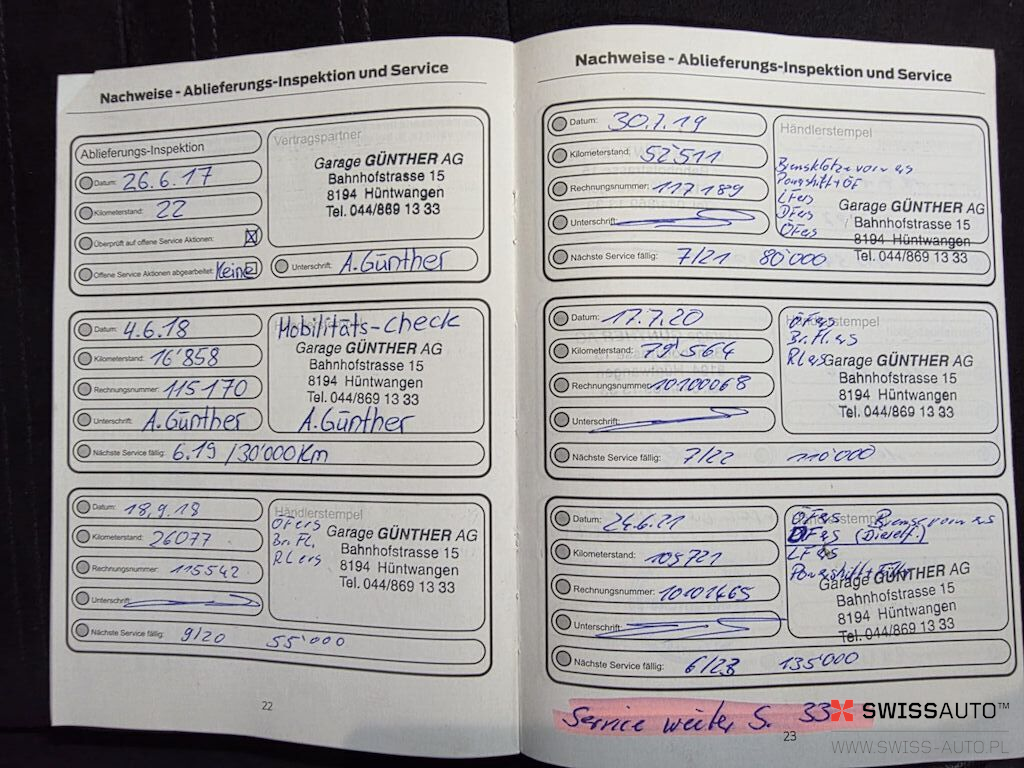 Nachweise - Ablieferungs-Inspektion und Service
Ablieferungs-Inspektion
Datum: 26.6.17
Kilometerstand: 22
Überprüft auf offene Service Aktionen:
Offene Service Aktionen abgearbeitet: Keine
Vertragspartner
Garage GÜNTHER AG
Bahnhofstrasse 15
8194 Hüntwangen
Tel. 044/869 13 33
Unterschrift: A.Günther
Datum: 4.6.18
Kilometerstand: 16'858
Rechnungsnummer: 115170
Unterschrift: A.Günther
Mobilitäts-check
Garage GÜNTHER AG
Bahnhofstrasse 15
8194 Hüntwangen
Tel. 044/869 13 33
A.Günther
Nächste Service fällig: 6.19 /30'000Km
Datum: 18.9.18
Kilometerstand: 26077
Rechnungsnummer: 115542
Unterschrift:
Händlerstempel
ÖFers
Br.Fl.
RLers
Garage GÜNTHER AG
Bahnhofstrasse 15
8194 Hüntwangen
Tel. 044/869 13 33
Nächste Service fällig: 9/20 55'000
22
Nachweise - Ablieferungs-Inspektion und Service
Datum: 30.7.19
Kilometerstand: 52'511
Rechnungsnummer: 117189
Unterschrift:
Händlerstempel
Bremsklötze vorn ers
Powershift + ÖF
LFers
DFers
ÖFers
Garage GÜNTHER AG
Bahnhofstrasse 15
8194 Hüntwangen
Tel. 044/869 13 33
Nächste Service fällig: 7/21 80'000
Datum: 17.7.20
Kilometerstand: 79'564
Rechnungsnummer: 10100068
Unterschrift:
Händlerstempel
ÖFers
Br.Fl.ers
RLers
Garage GÜNTHER AG
Bahnhofstrasse 15
8194 Hüntwangen
Tel. 044/869 13 33
Nächste Service fällig: 7/22 110'000
Datum: 24.6.21
Kilometerstand: 109721
Rechnungsnummer: 10101465
Unterschrift:
Händlerstempel
ÖFers Bremse vorn ers
DFers (Dieself.)
LFers
Powershift +
Garage GÜNTHER AG
Bahnhofstrasse 15
8194 Hüntwangen
Tel. 044/869 13 33
Nächste Service fällig: 6/23 135'000
Service weiter S. 33
23
SWISSAUTO™
WWW.SWISS-AUTO.PL